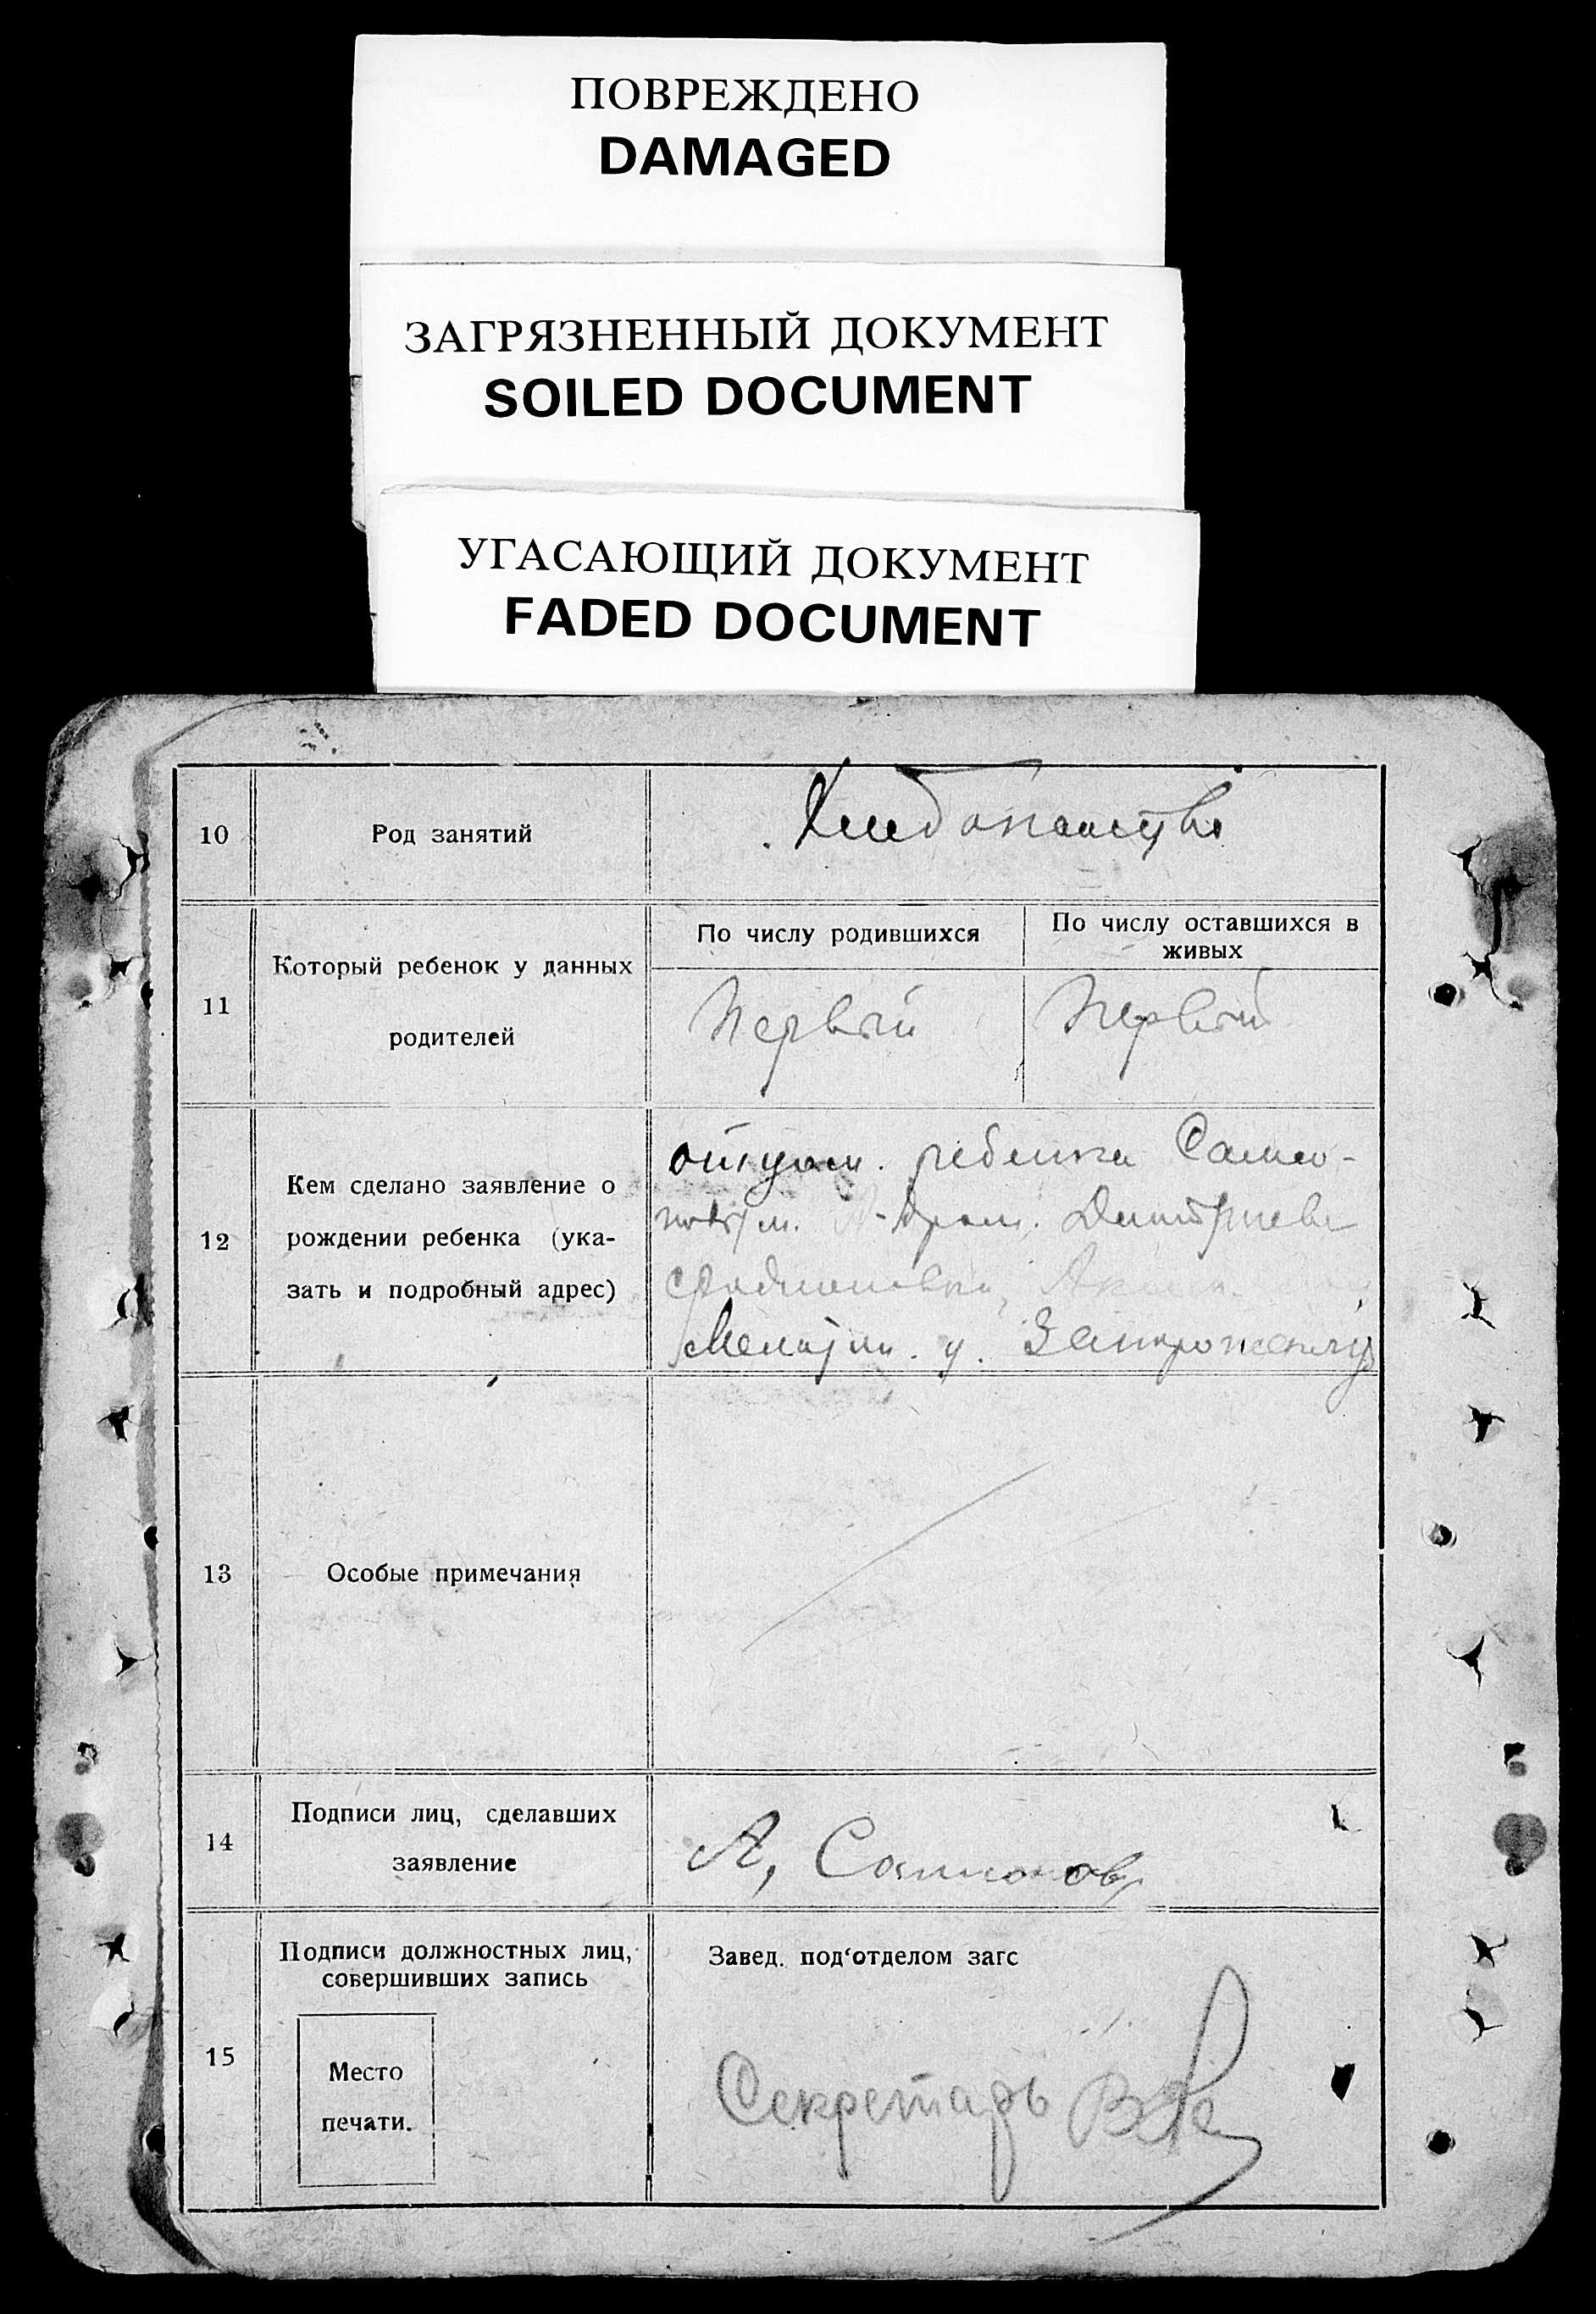 ПОВРЕЖДЕНО
DAMAGED
ЗАГРЯЗНЕННЫЙ ДОКУМЕНТ
SOILED DOCUMENT
УГАСАЮЩИЙ ДОКУМЕНТ
FADED DOCUMENT
10
Род занятий
11
Который ребенок у данных
родителей
По числу родившихся
По числу оставшихся в
живых
Первый
Первый
12
Кем сделано заявление о
рождении ребенка (ука-
зать и подробный адрес)
отцом. ребенка
Мелит
у.
13
Особые примечания
14
Подписи лиц, сделавших
заявление
А,
15
Подписи должностных лиц,
совершивших запись
Место
печати.
Завед. под‘отделом загс
Секретарь